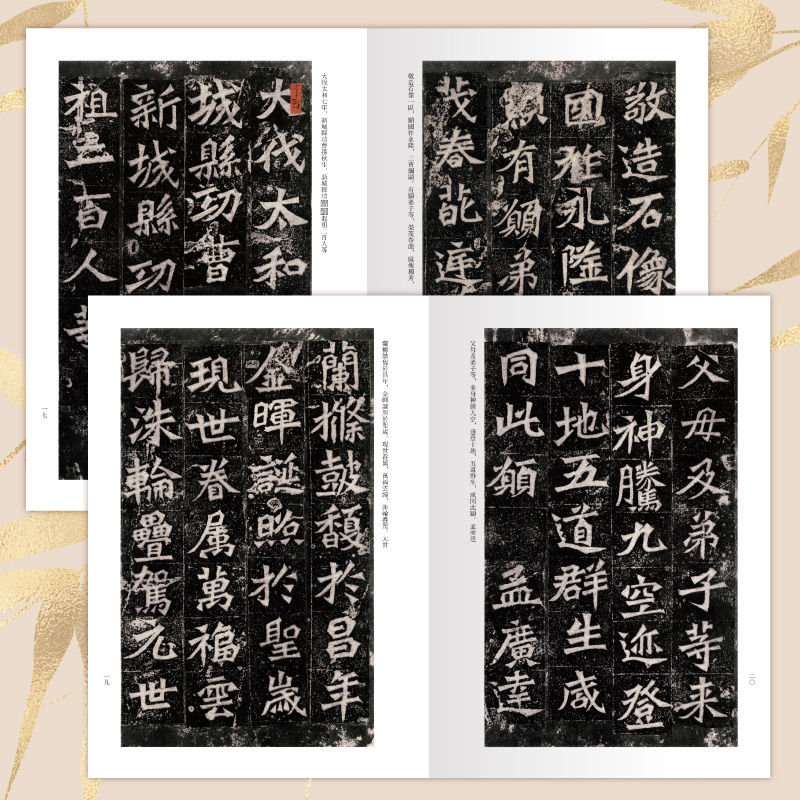 大伐太和七年，新城縣功曹孫秋生、新城縣功曹劉起祖二百人等
大伐太和
城縣功曹
新城縣功
祖二百人等
一七
敬造石像
國祚永隆
顯有願弟
茂春葩庭
敬造石像一區，願國祚永隆，三寶彌顯。有願弟子等，榮茂春葩，庭槐獨秀，
蘭條鼓馥於昌年，金暉誕照於聖歲。現世眷属，萬福雲歸，洙輪疊駕。元世
蘭條鼓馥於昌年
金暉誕照於聖歲
現世眷属萬福雲
歸洙輪疊駕元世
一九
父母及弟子等来
身神騰九空迹登
十地五道群生咸
同此願 孟廣達
父母及弟子等，来身神騰九空，迹登十地。五道群生，咸同此願。孟廣達
二〇